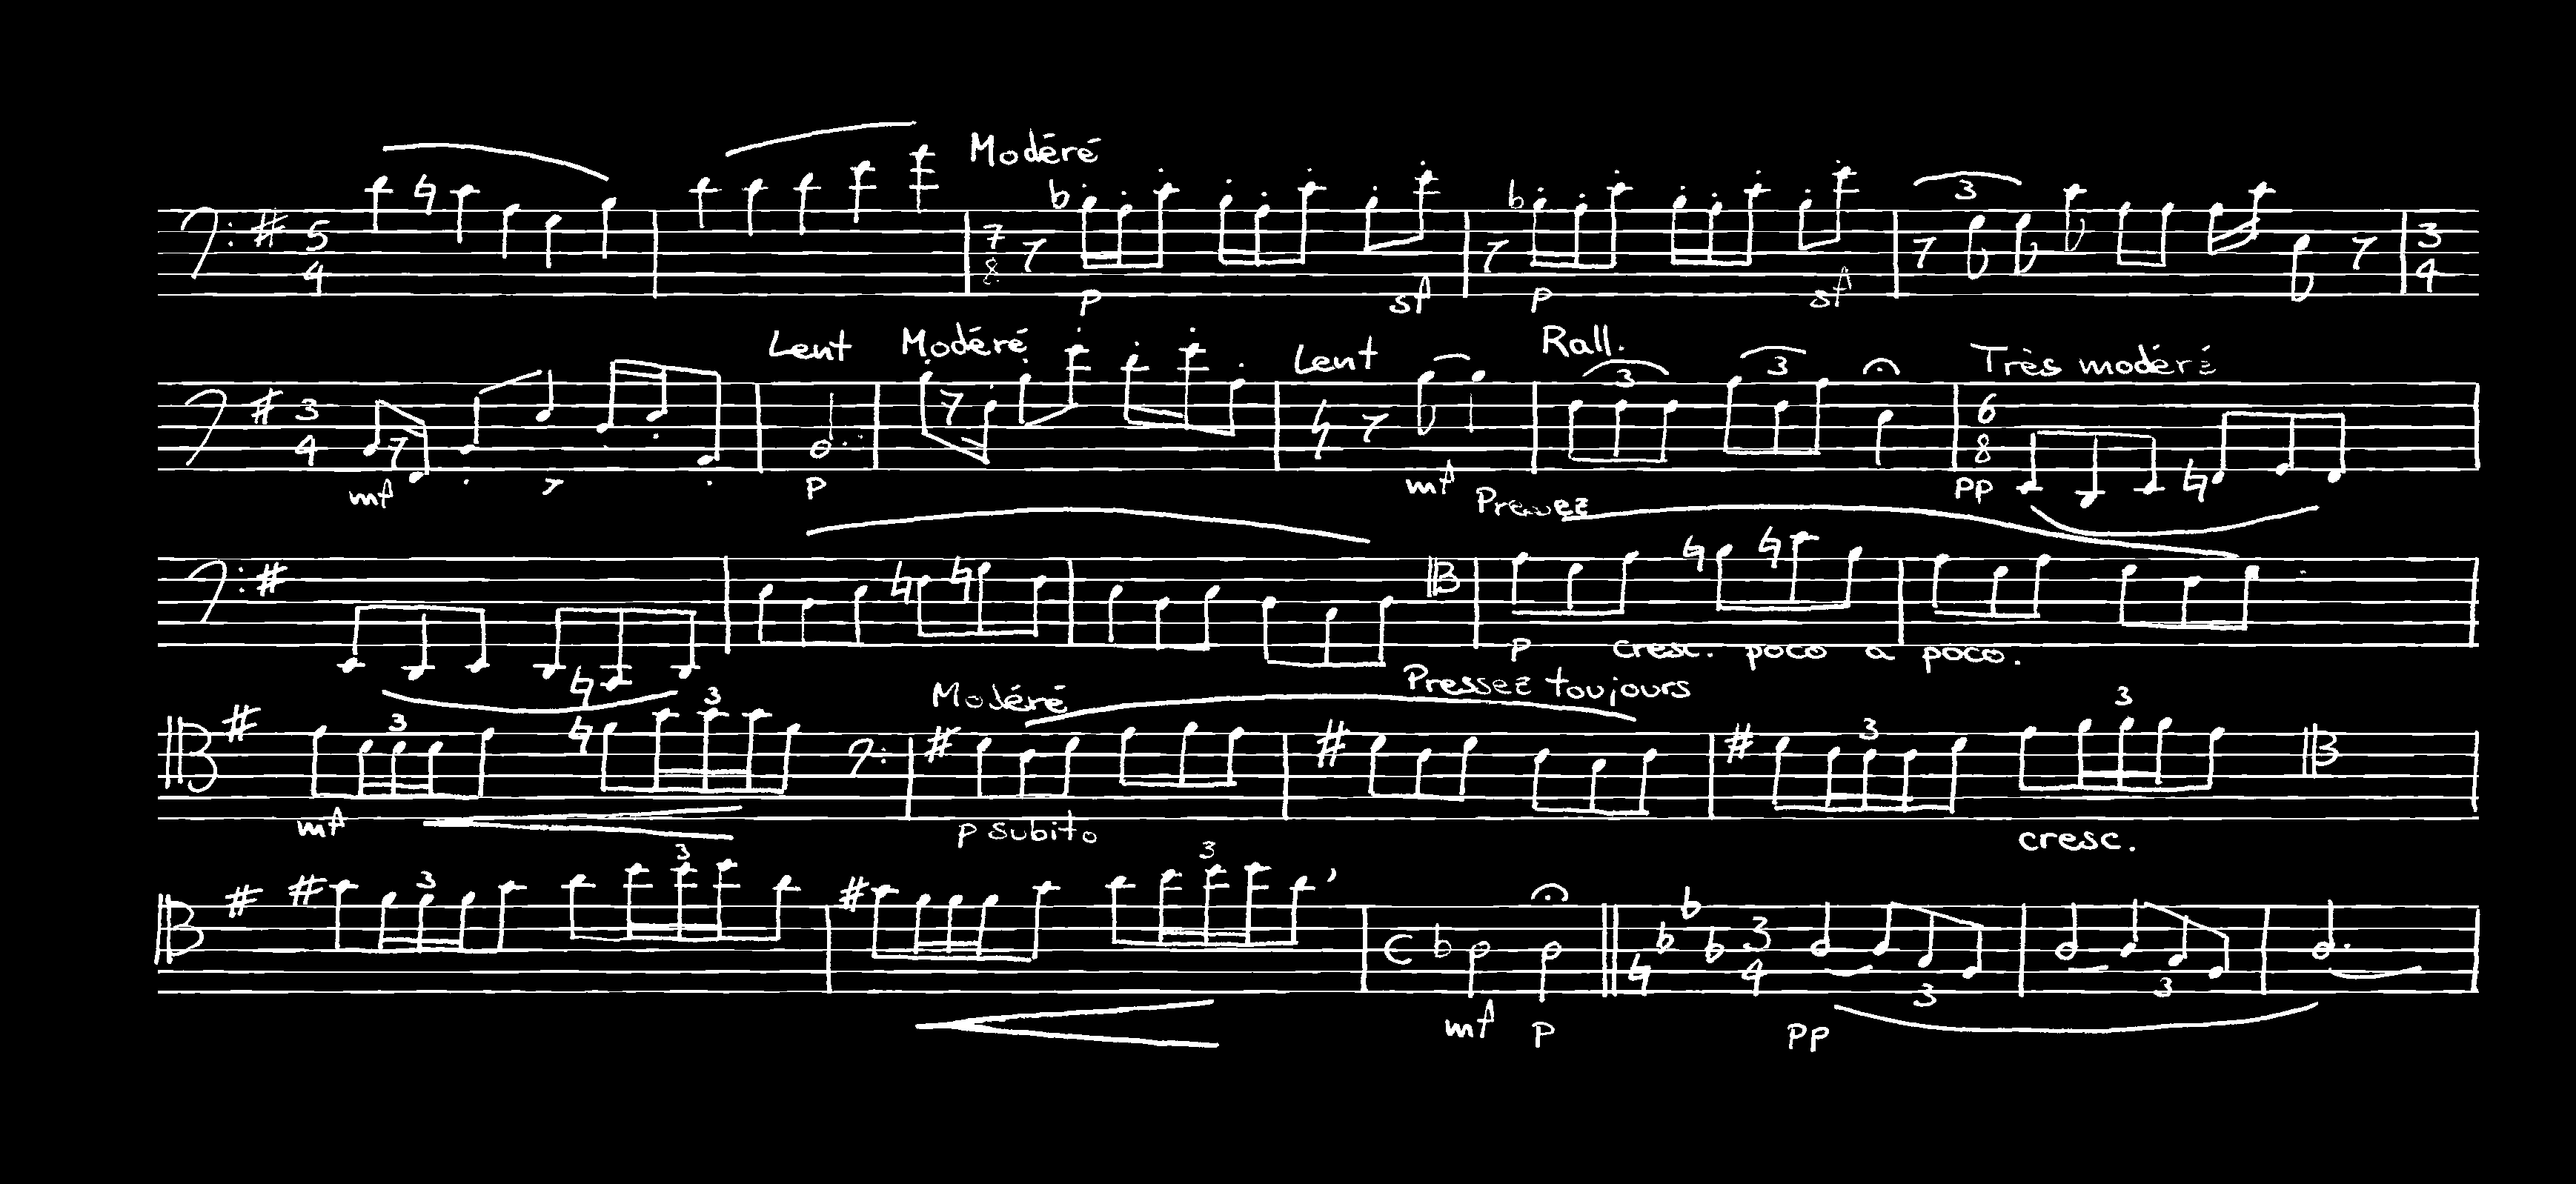 Modéré
p sf p sf
3
Lent Modéré Lent Rall. Très modéré
mf p mf pp
3 3
Pressez
p cresc. poco a poco.
Modéré Pressez toujours
3 3 3 3
mf p subito cresc.
3 3 3
mf p pp
3 3